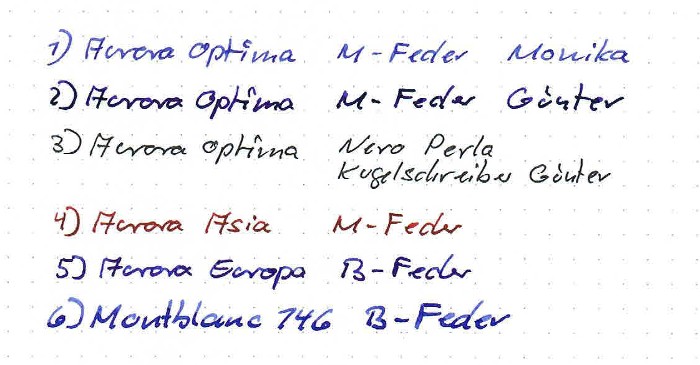 1) Aurora Optima M-Feder Monika
2) Aurora Optima M-Feder Günter
3) Aurora Optima Nero Perla
Kugelschreiber Günter
4) Aurora Asia M-Feder
5) Aurora Europa B-Feder
6) Montblanc 146 B-Feder